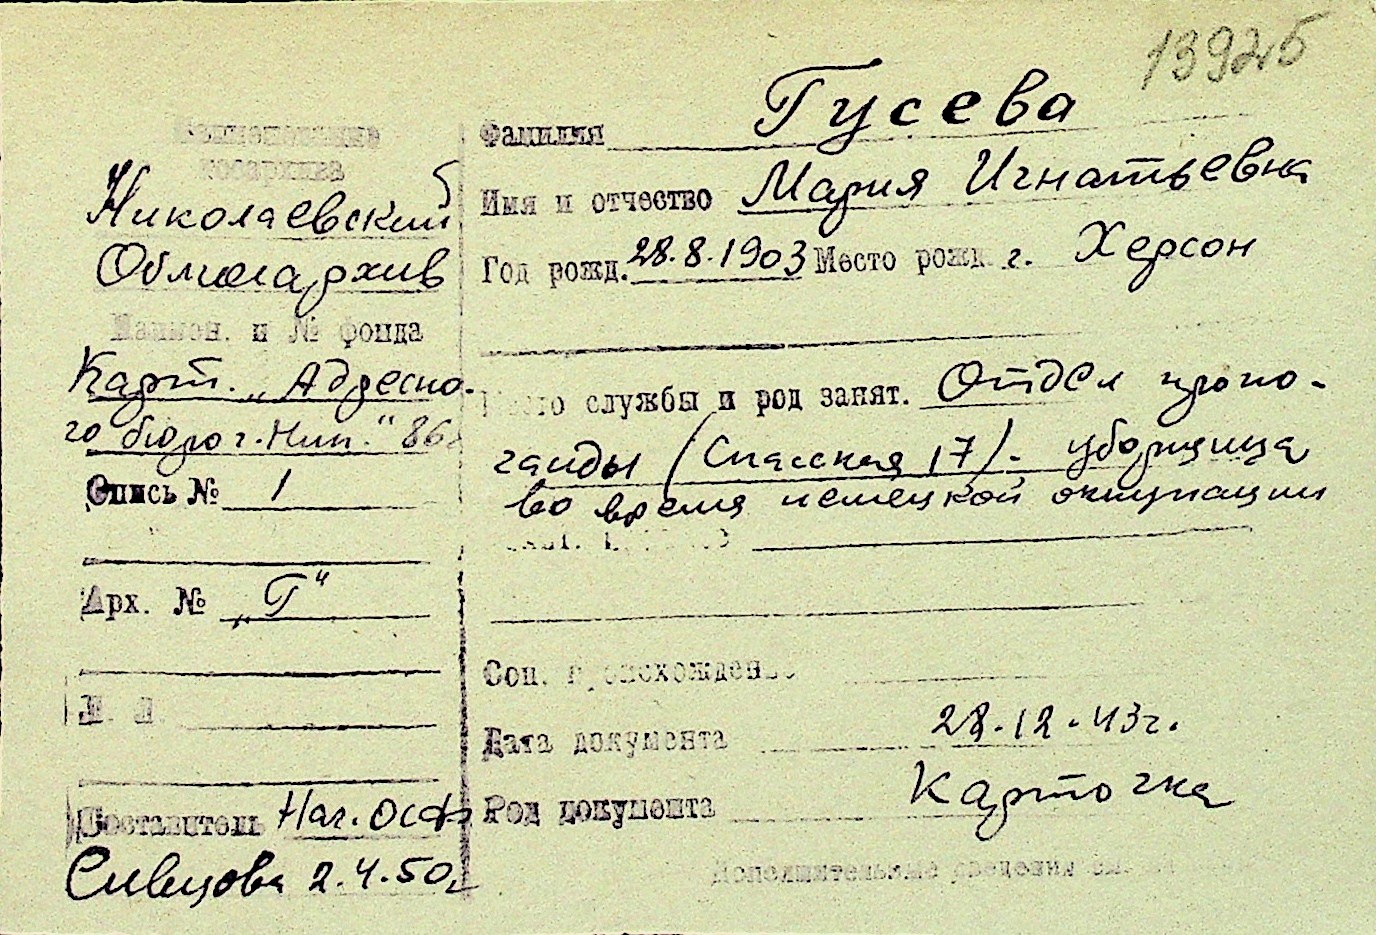 13925
Наименование
госархива
Николаевский
Облгосархив
Наимен. и № фонда
Карт. „Адресно-
го бюро г. Ник." 86
Опись № 1
Арх. № „Г"
Л. Л.
Составитель Нач. ОСФ
Сивцова 2.4.50г
Фамилия Гусева
Имя и отчество Мария Игнатьевна
Год рожд. 28.8.1903 Место рожд. г. Херсон
Место службы и род занят. Отдел пропо-
ганды (Спасская 17) - уборщица
во время немецкой оккупации
Соц. происхождение
Дата документа 28.12.43г.
Род документа Карточка
Дополнительные сведения